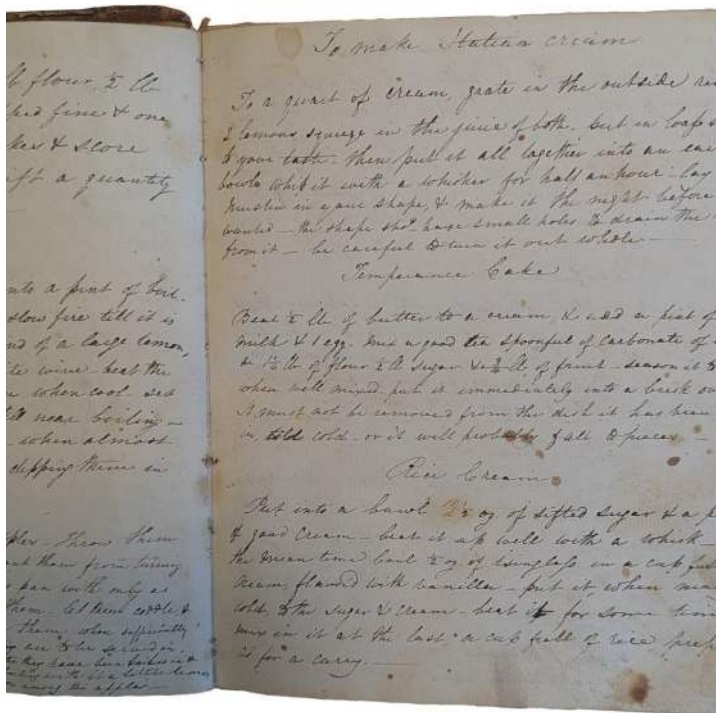 b flour, ½ lb
fine & one
& score
a quantity
into a pint of
slow fire till it is
of a large lemon,
wine beat the
when cool
near boiling –
when almost
dipping them in
Throw them
them from turning
pan with only as
them. let them coddle &
them, when sufficiently
are to be served in
they have been
with a little lemon
among the apples –
To make Italian cream
To a quart of cream, grate in the outside
2 lemons squeeze in the juice of both. put in loaf
to your taste – then put it all together into an
bowl whisk it with a whisker for half an hour – lay
muslin in your shape, & make it the night before
wanted – the shape shod. have small holes to drain the
from it – be careful to turn it out whole –
Temperance Cake
Beat ½ lb of butter to a cream, & add a pint of
milk & 1 egg. mix a good tea spoonful of carbonate of
lb of flour ½ lb sugar & lb of fruit – season it to
when well mixed put it immediately into a brisk
it must not be removed from the dish it has been
in, told cold – or it will probably fall to pieces –
Rice Cream
Put into a bowl oz. of sifted sugar & a
of good cream – beat it up well with a whisk –
the mean time boil ½ oz. of isinglass in a cup
cream, flavored with vanilla – put it when
cold, to the sugar & cream – beat it for some
mix in it at the last a cup full of rice
as for a curry. –